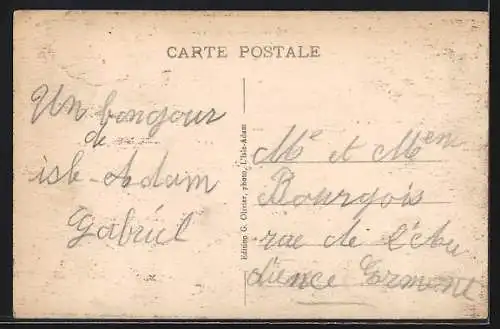 CARTE POSTALE
Un bongour
de
isle-Adam
Gabriel
Edition G. Olivier, photo, L'Isle-Adam
Mr et Mem
Bourgois
rue de l'Au
dience Ermont